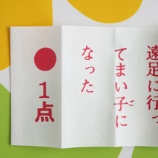 遠足に行っ
てまい子に
なった
●1点